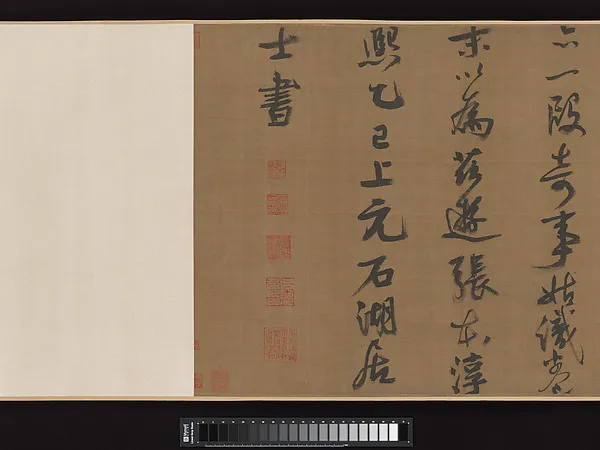 亦一段奇事姑識卷
末以為苕遊張本淳
熙乙巳上元石湖居
士書